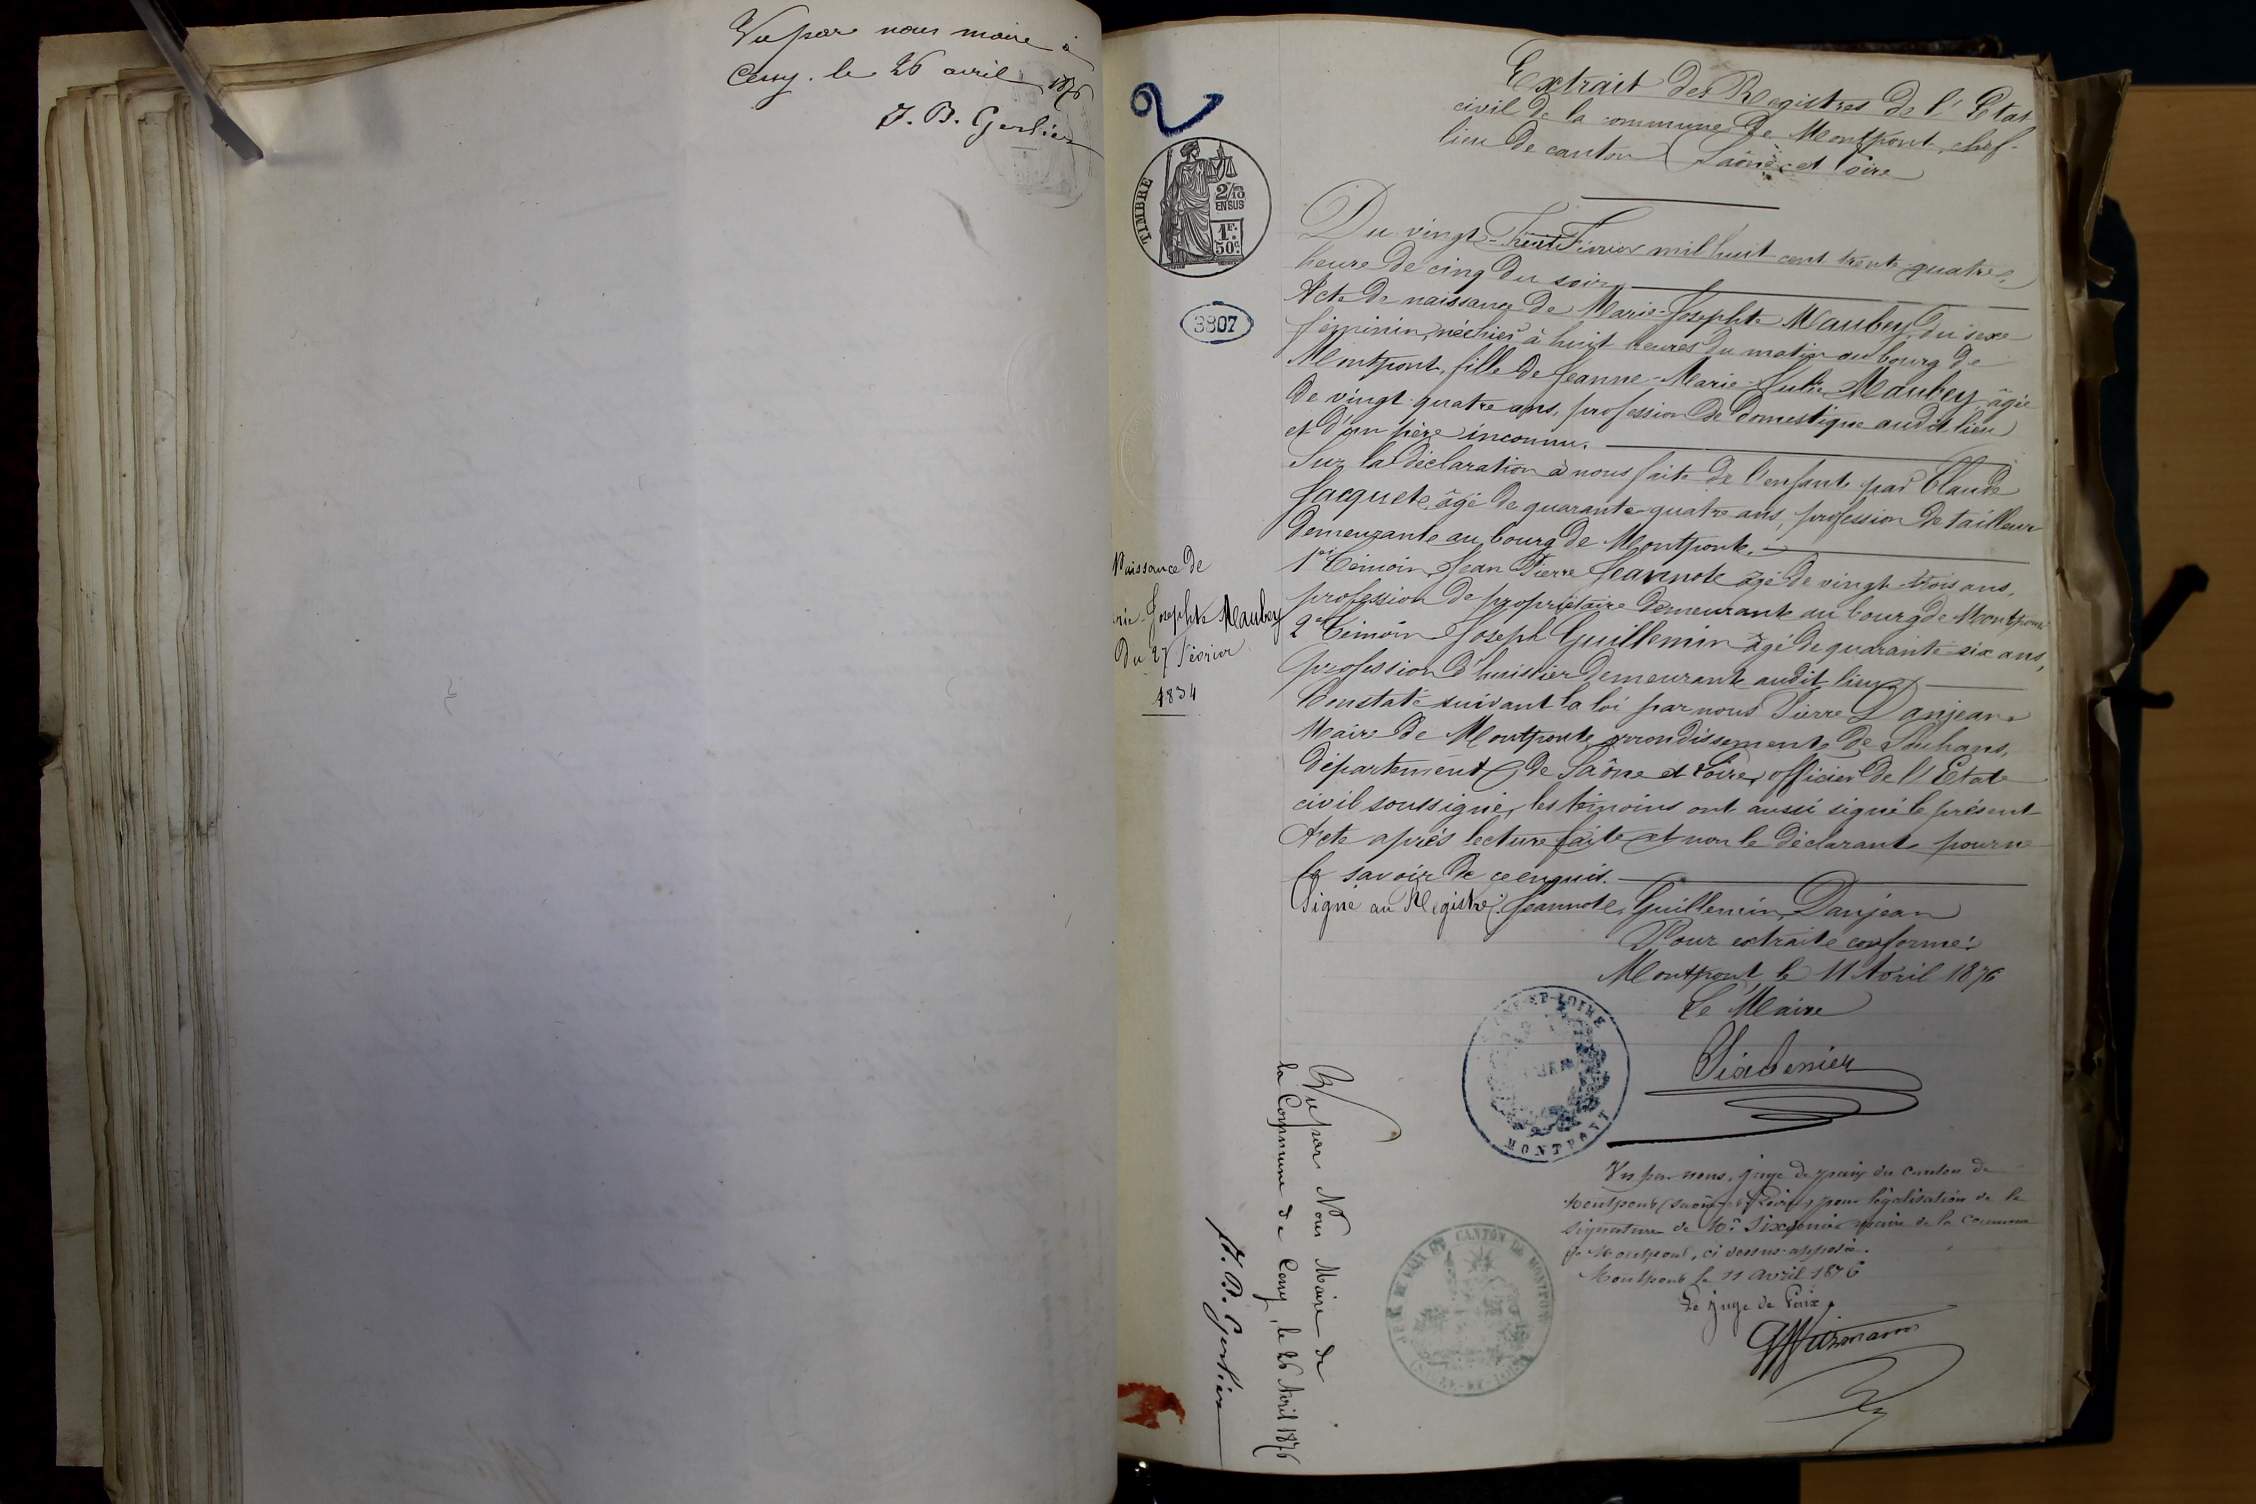 Vu par nous maire à
Cessy. le 26 avril 1876
J. B. Gerlier
2
TIMBRE
2/10
EN SUS
1F.
50c.
3807
Extrait des Registres de l'Etat
civil de la commune de Montpont, chef-
lieu de canton (Saône et Loire
Du vingt-huit Février mil huit cent trente quatre,
heure de cinq du soir,
Acte de naissance de Marie-Josephte Maubey, du sexe
féminin, née hier à huit heures du matin au bourg de
Montpont, fille de Jeanne-Marie-Julie Maubey, âgée
de vingt quatre ans, profession de Domestique audit lieu
et d'un père inconnu.
Sur la déclaration à nous faite de l'enfant par Claude
Jacquet, âgé de quarante quatre ans, profession de tailleur
demeurant au bourg de Montpont.
1er Témoin, Jean Pierre Jeannot âgé de vingt trois ans,
profession de propriétaire demeurant au bourg de Montpont
2e Témoin Joseph Guillemin âgé de quarante six ans,
profession d'huissier demeurant audit lieu
Constaté suivant la loi par nous Pierre Danjean
Maire de Montpont, arrondissement de Louhans,
département de Saône et Loire, officier de l'Etat
civil soussigné, les témoins ont aussi signé le présent
Acte après lecture faite et non le déclarant pour ne
le savoir de ce enquis.
Signé au Registre: Jeannot, Guillemin, Danjean
Naissance de
rie-Josephte Maubey
Du 27 Février
1834
Pour extrait conforme:
Montpont, le 11 Avril 1876
Le Maire
Sixdenier
ET-LOIRE
MONTPONT
Vu par nous, juge de paix du canton de
Montpont (Saône et Loire) pour légalisation de la
signature de Mr Sixdenier maire de la commune
de Montpont, ci dessus apposée.
Montpont le 11 avril 1876
Le Juge de Paix
DE PAIX DU CANTON DE MONTPONT
Vu par Nous Maire de
la Commune de Cessy, le 26 Avril 1876
J. B. Gerlier